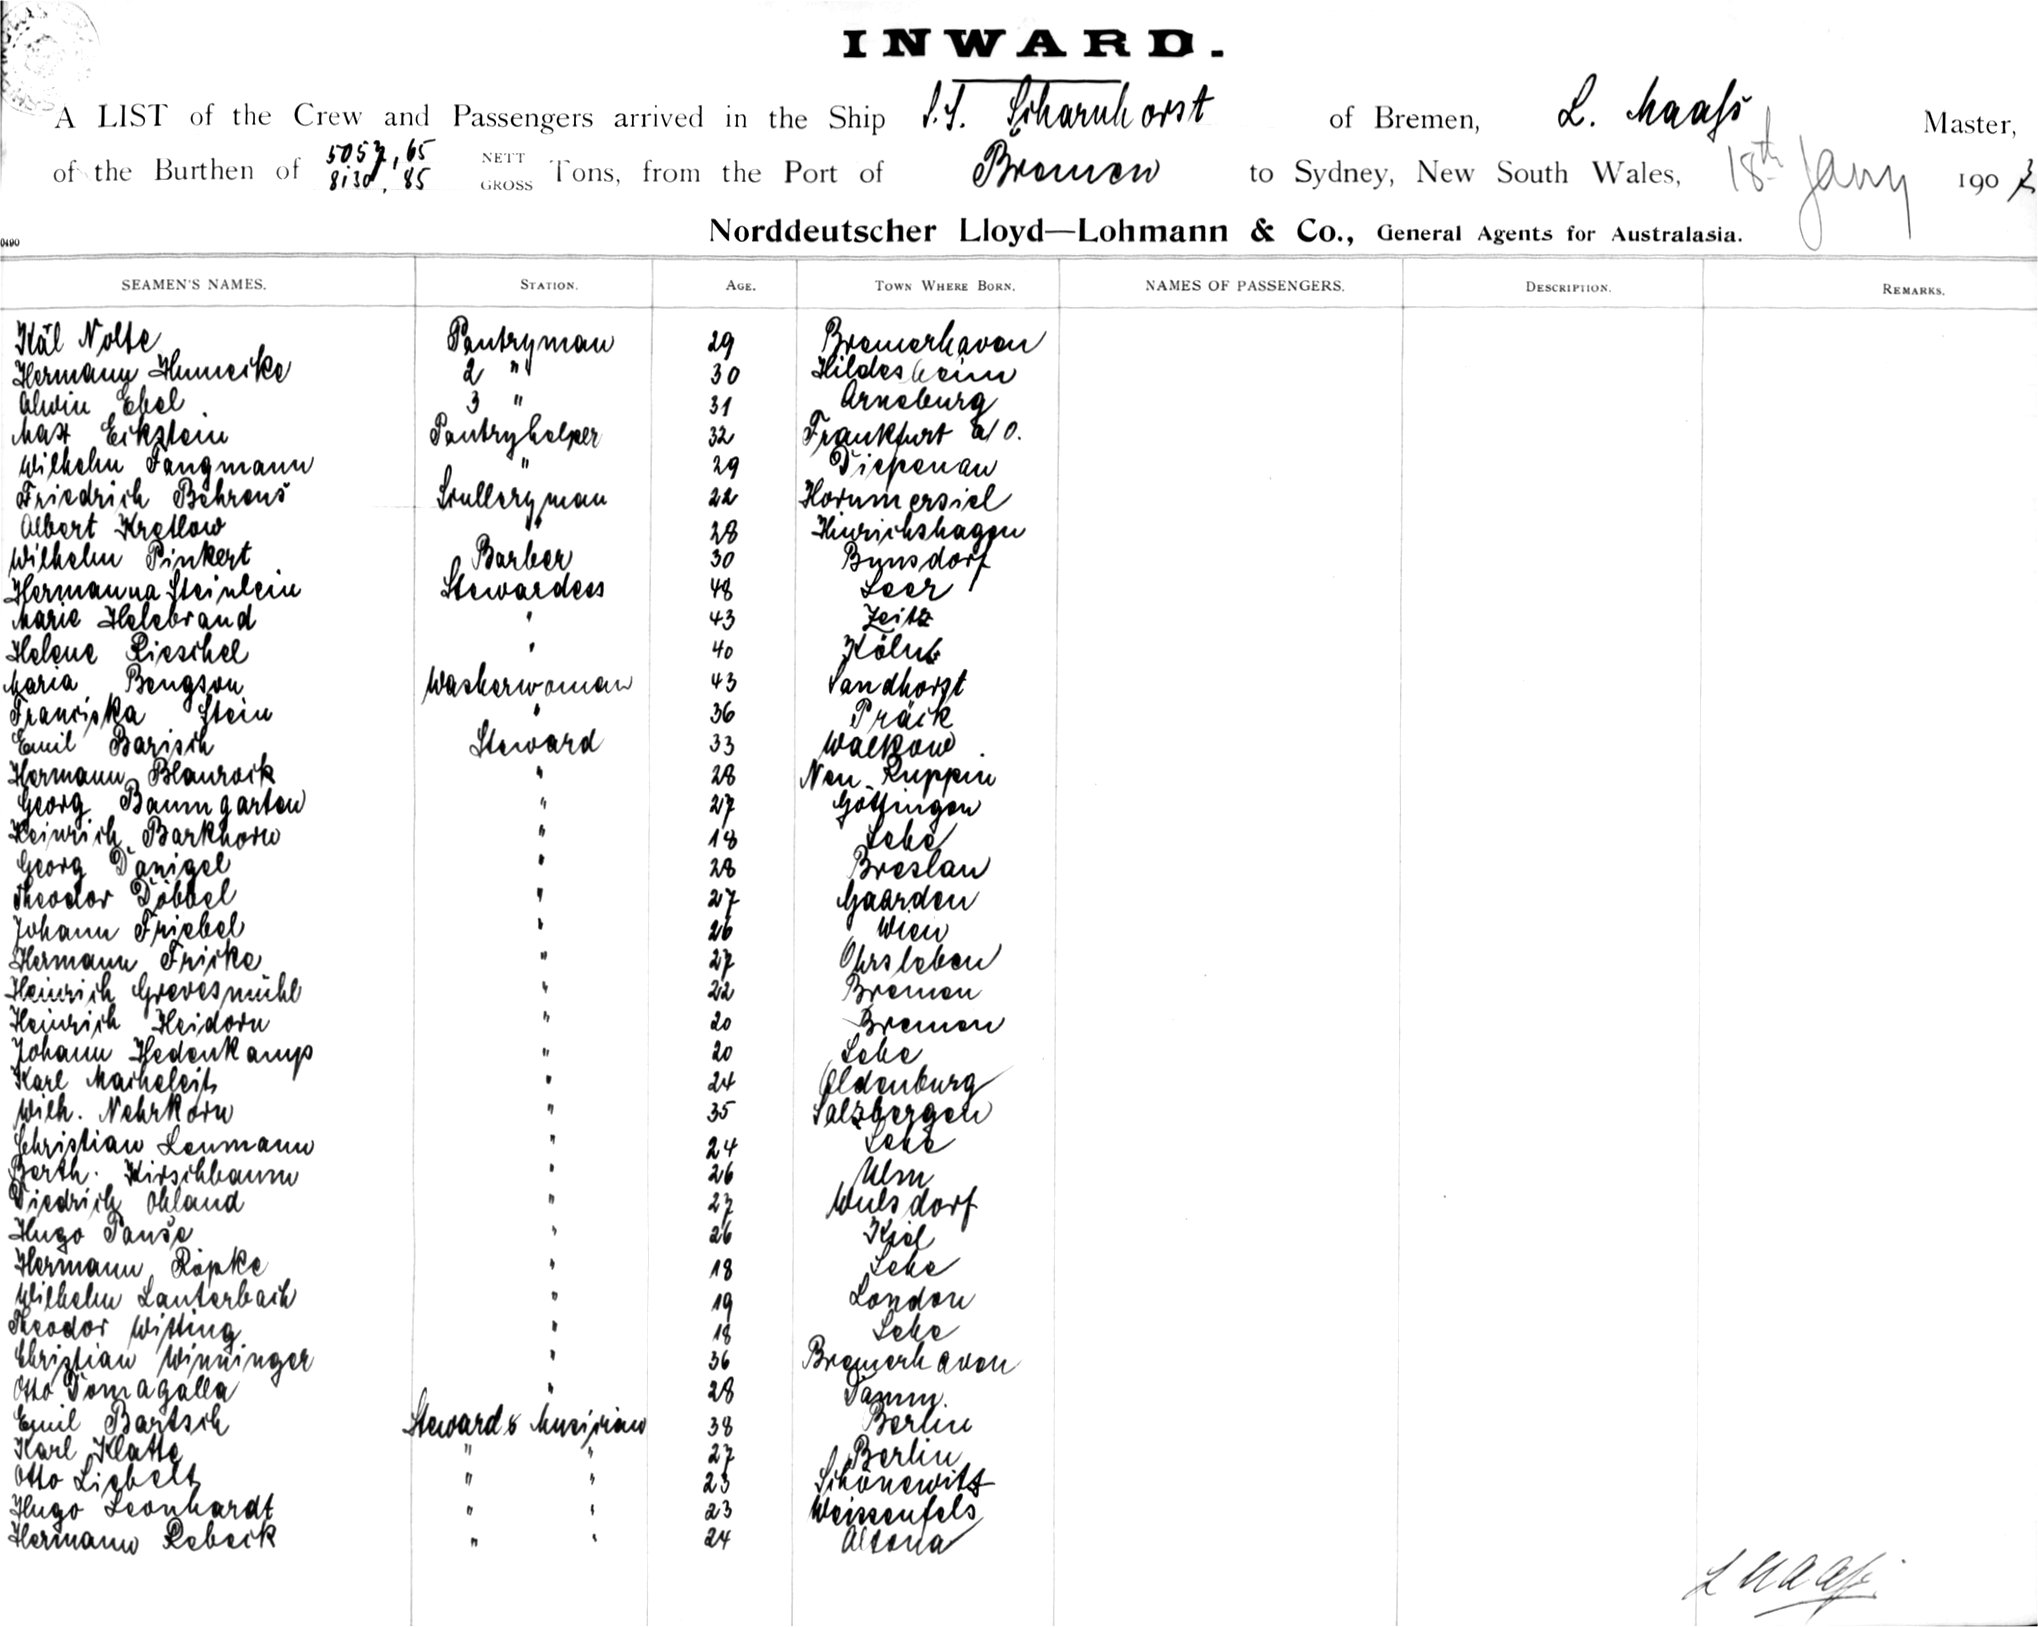 INWARD.
A LIST of the Crew and Passengers arrived in the Ship S.S. Scharnhorst of Bremen, L. Maaß Master,
of the Burthen of 5057,65 NETT 8130,85 GROSS Tons, from the Port of Bremen to Sydney, New South Wales, 18th Jany 190
Norddeutscher Lloyd—Lohmann & Co., General Agents for Australasia.
0490
SEAMEN'S NAMES. STATION. AGE. TOWN WHERE BORN. NAMES OF PASSENGERS. DESCRIPTION. REMARKS.
Nolte Pantryman 29 Bremerhaven
Hermann Humeike 2 " 30 Hildesheim
Alwin Ebel 3 " 31 Arneburg
Max Eckstein Pantryhelper 32 Frankfurt a/O.
Wilhelm Fangmann " 29 Diepenau
Friedrich Behrens Sculleryman 22 Hornmersiel
Albert Kretlow " 28 Hinrichshagen
Wilhelm Pinkert Barber 30 Bunsdorf
Hermanna Steinlein Stewardess 48 Leer
Marie Helebrand " 43 Zeitz
Helene Rieschel " 40 Köln
Maria Bengson Washerwoman 43 Sandhorst
Franciska Stein " 36 Präik
Emil Barisch Steward 33 Walkow
Hermann Blaurock " 28 Neu Ruppin
Georg Baumgarten " 27 Göttingen
Heinrich Barkhorn " 18 Lehe
Georg Danigel " 28 Breslau
Theodor Döbbel " 27 Gaarden
Johann Friebel " 26 Wien
Hermann Fricke " 27 Ohrsleben
Heinrich Grevesmühl " 22 Bremen
Heinrich Heidorn " 20 Bremen
Johann Hedenkamp " 20 Lehe
Karl Macheleits " 24 Oldenburg
Wilh. Nehrkorn " 35 Salzbergen
Christian Lenmann " 24 Lehe
Berth. Kirschbaum " 26 Ulm
Diedrich Ohland " 27 Wulsdorf
Hugo Panse " 26 Kiel
Hermann Röpke " 18 Lehe
Wilhelm Lauterbach " 19 London
Theodor Witting " 18 Lehe
Christian Winninger " 36 Bremerhaven
Otto Domagalla " 28 Damm.
Emil Bartsch Steward & Musician 38 Berlin
Karl Klatte " " 27 Berlin
Otto Liebelt " " 23 Schönewitz
Hugo Leonhardt " " 23 Weissenfels
Hermann Rebeck " " 24 Altona
L Maaß